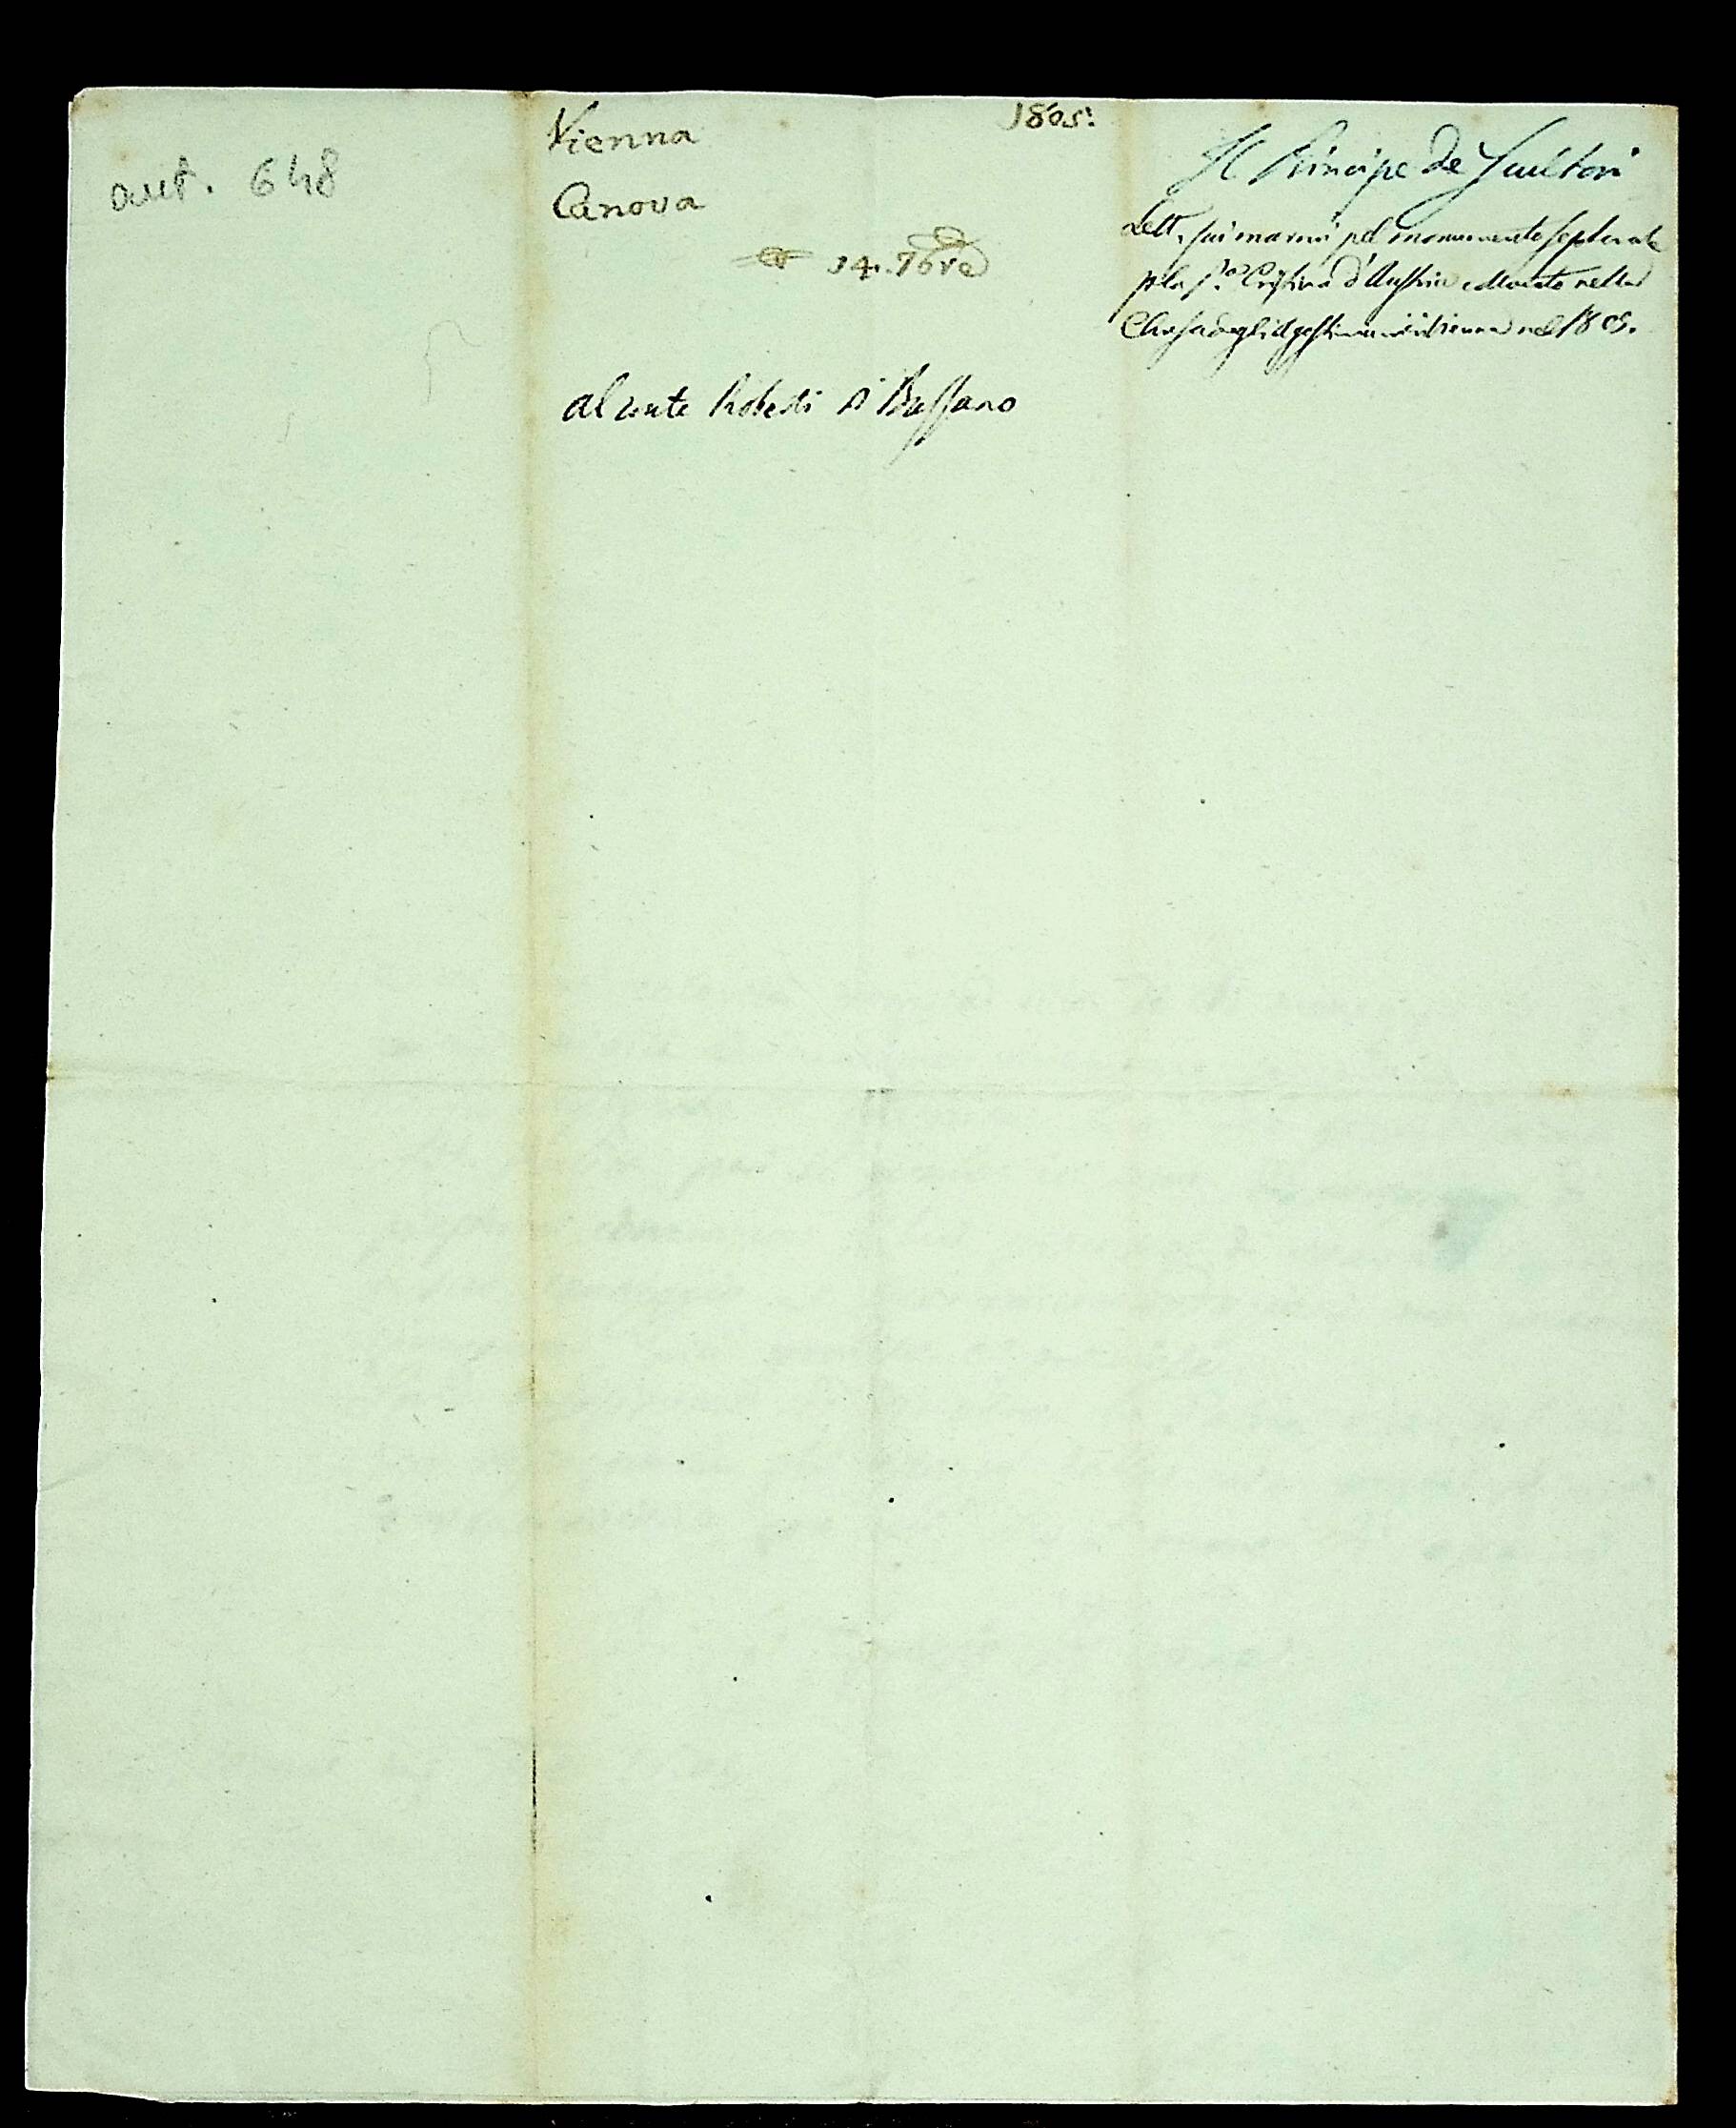 aut. 648
Vienna
1805:
Canova
14. 7bre
al conte Roberti di Bassano
Il Principe de Scultori
Lett. sui marmi pel monumento sepolcrale
p la Pa. Cristina d'Austria collocato nella
Chiesa degli Agostiniani in Vienna nel 1805.